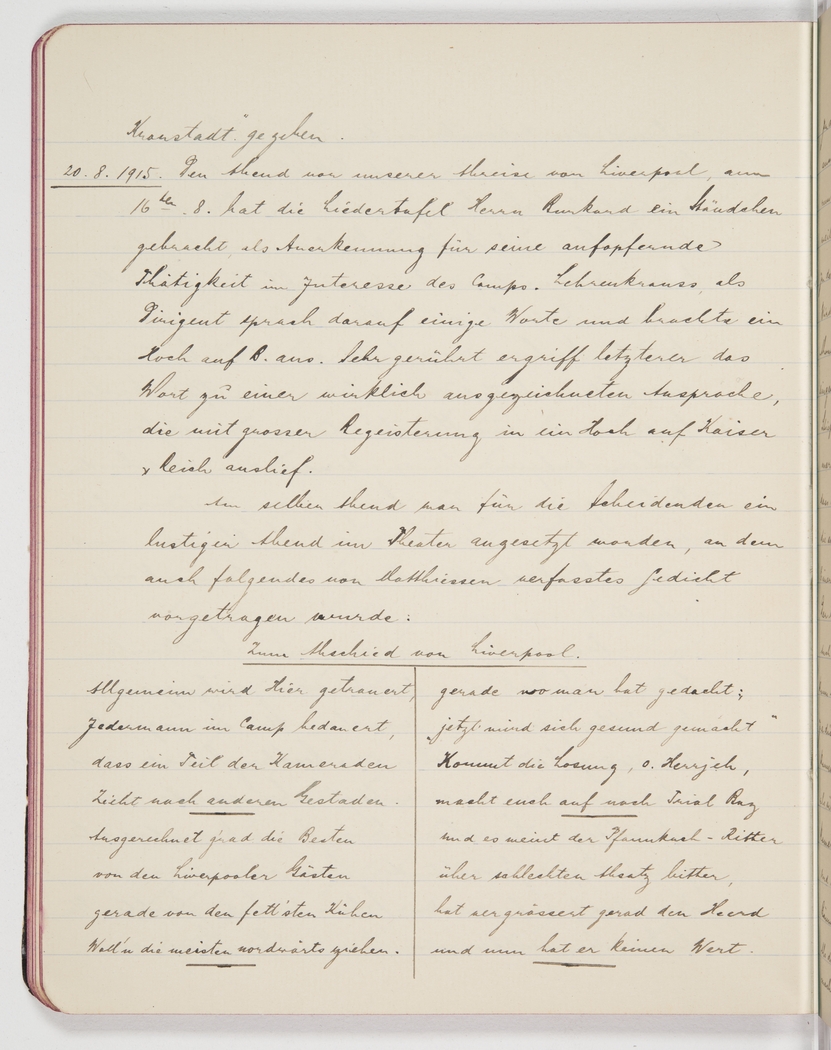 Kronstadt." gegeben.
20.8.1915. Den Abend vor unserer Abreise von Liverpool, am
16ten. 8. hat die Liedertafel Herrn Burkard ein Ständchen
gebracht, als Anerkennung für seine aufopfernde
Thätigkeit im Interesse des Camps. Lehrenkrauss, als
Dirigent sprach darauf einige Worte und brachte ein
Hoch auf B. aus. Sehr gerührt ergriff letzterer das
Wort zu einer wirklich ausgezeichneten Ansprache,
die mit grosser Begeisterung in ein Hoch auf Kaiser
& Reich auslief.
Am selben Abend war für die Scheidenden ein
lustiger Abend im Theater angesetzt worden, an dem
auch folgendes von Matthiessen verfasstes Gedicht
vorgetragen wurde:
Zum Abschied von Liverpool.
Allgemein wird Hier getrauert,
Jedermann im Camp bedauert,
dass ein Teil der Kameraden
Zieht nach anderen Gestaden.
Ausgerechnet g'rad die Besten
von den Liverpooler Gästen
gerade von den fett'sten Kühen
Woll'n die meisten nordwärts ziehen.
gerade wo man hat gedacht;
"jetzt wird sich gesund gemacht"
Kommt die Losung, o. Herrjeh,
macht euch auf nach Trial Bay
und es meint der Pfannkuch-Ritter
über schlechten Absatz bitter,
hat vergrössert gerad den Heerd
und nun hat er keinen Wert.